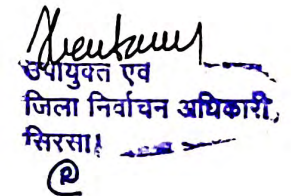 उपायुक्त एवं
जिला निर्वाचन अधिकारी,
सिरसा।